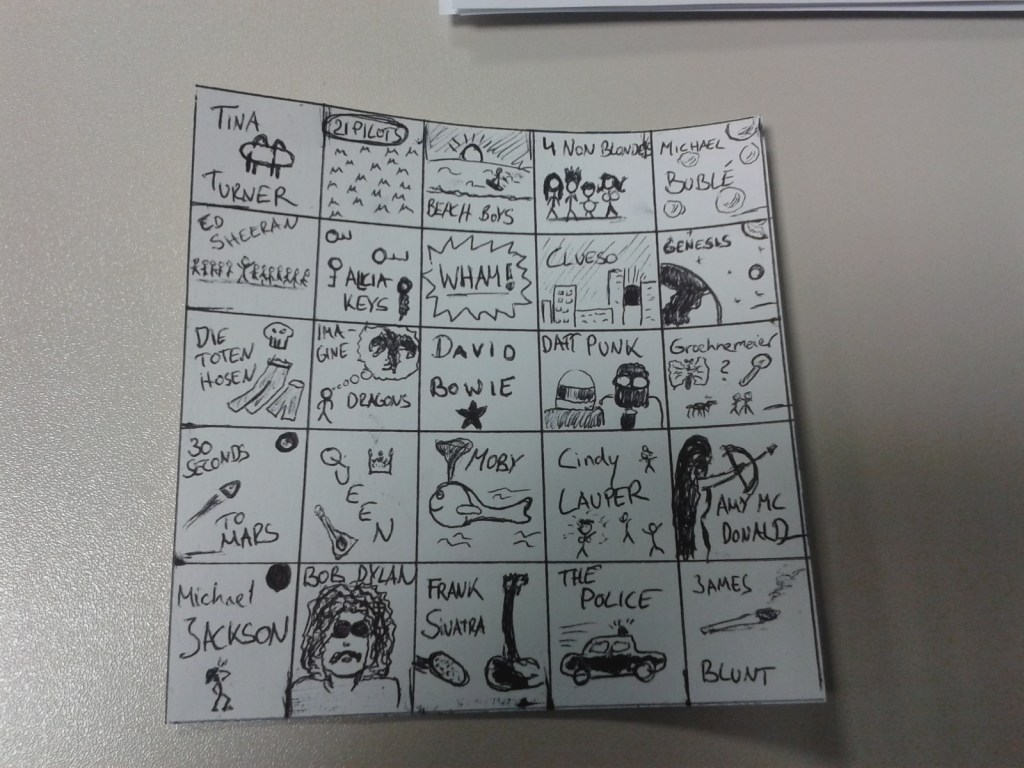 TINA
TURNER
21 PILOTS
BEACH BOYS
4 NON BLONDES
MICHAEL
BUBLÉ
ED
SHEERAN
ALICIA
KEYS
WHAM!
CLUESO
GENESIS
DIE
TOTEN
HOSEN
IMA-
GINE
DRAGONS
DAVID
BOWIE
DAFT PUNK
Groehnemeier
?
30
SECONDS
TO
MARS
Q
E
E
N
MOBY
Cindy
LAUPER
AMY MC
DONALD
Michael
JACKSON
BOB DYLAN
FRANK
SINATRA
THE
POLICE
JAMES
BLUNT